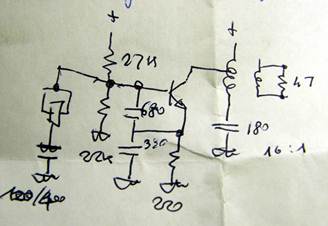 +
+
27K
680
47
22K
330
180
16:1
220